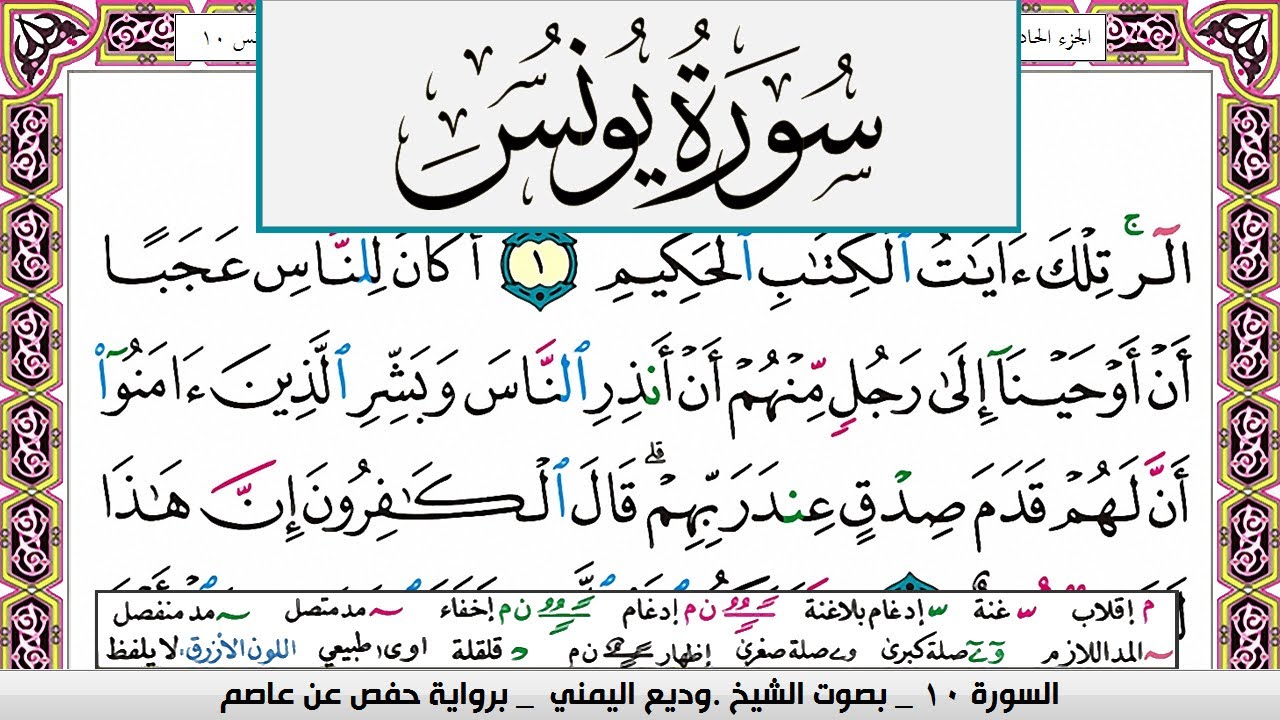 الجزء الحاد
نس ١٠
سُورَةُ يُونُسَ
الٓرۚ تِلْكَ ءَايَٰتُ ٱلْكِتَٰبِ ٱلْحَكِيمِ ١ أَكَانَ لِلنَّاسِ عَجَبًا
أَنْ أَوْحَيْنَآ إِلَىٰ رَجُلٍ مِّنْهُمْ أَنْ أَنذِرِ ٱلنَّاسَ وَبَشِّرِ ٱلَّذِينَ ءَامَنُوٓا۟
أَنَّ لَهُمْ قَدَمَ صِدْقٍ عِندَ رَبِّهِمْ ۗ قَالَ ٱلْكَٰفِرُونَ إِنَّ هَٰذَا
م إقلاب غنة إدغام بلاغنة ن م إدغام ن م إخفاء مد متصل مد منفصل
المد اللازم صلة كبرى صلة صغرى إظهار ن م قلقلة اوى طبيعي اللون الأزرق: لا يلفظ
السورة ١٠ _ بصوت الشيخ .وديع اليمني _ برواية حفص عن عاصم